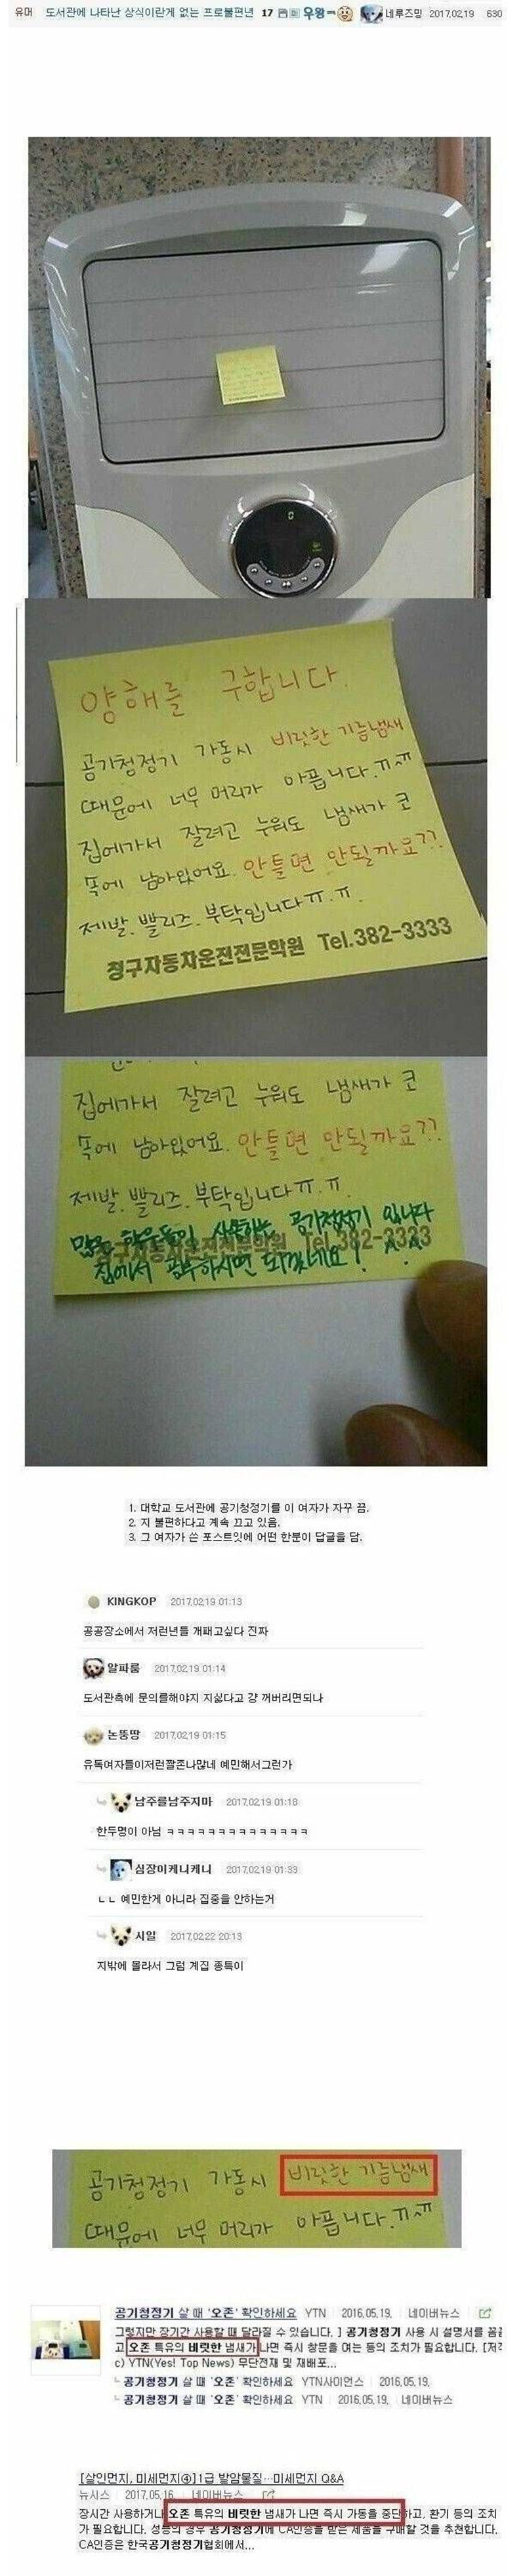 유머 도서관에 나타난 상식이란게 없는 프로불편년 17 우왕ㅋ 네루즈밍 2017.02.19 630
0
양해를 구합니다.
공기청정기 가동시 비릿한 기름냄새
때문에 너무 머리가 아픕니다.ㅠㅠ
집에가서 잘려고 누워도 냄새가 코
속에 남아있어요. 안틀면 안될까요??
제발.쁠리즈.부탁입니다ㅠ.ㅠ.
청구자동차운전전문학원 Tel.382-3333
집에가서 잘려고 누워도 냄새가 코
속에 남아있어요. 안틀면 안될까요??
제발.쁠리즈.부탁입니다ㅠ.ㅠ.
많은 학우들이 사용하는 공기청정기 입니다
청구자동차운전전문학원 Tel.382-3333
집에서 공부하시면 되겠네요! ^^
1. 대학교 도서관에 공기청정기를 이 여자가 자꾸 끔.
2. 지 불편하다고 계속 끄고 있음.
3. 그 여자가 쓴 포스트잇에 어떤 한분이 답글을 담.
KINGKOP 2017.02.19 01:13
공공장소에서 저런년들 개패고싶다 진짜
알파룸 2017.02.19 01:14
도서관측에 문의를해야지 지싫다고 걍 꺼버리면되나
논뚱땅 2017.02.19 01:15
유독여자들이저런짤존나많네 예민해서그런가
남주를남주지마 2017.02.19 01:18
한두명이 아님 ㅋㅋㅋㅋㅋㅋㅋㅋㅋㅋㅋㅋㅋㅋ
심장이케니케니 2017.02.19 01:33
ㄴㄴ 예민한게 아니라 집중을 안하는거
시일 2017.02.22 20:13
지밖에 몰라서 그럼 계집 종특이
공기청정기 가동시 비릿한 기름냄새
때문에 너무 머리가 아픕니다.ㅠㅠ
공기청정기 살 때 '오존' 확인하세요 YTN 2016.05.19. 네이버뉴스
그렇지만 장기간 사용할 때 달라질 수 있습니다. ] 공기청정기 사용 시 설명서를 꼼꼼
고 오존 특유의 비릿한 냄새가 나면 즉시 창문을 여는 등의 조치가 필요합니다. [저작
c) YTN(Yes! Top News) 무단전재 및 재배포...
공기청정기 살 때 '오존' 확인하세요 YTN사이언스 2016.05.19.
공기청정기 살 때 '오존' 확인하세요 YTN 2016.05.19. 네이버뉴스
[살인먼지, 미세먼지④]1급 발암물질…미세먼지 Q&A
뉴시스 2017.05.16. 네이버뉴스
장시간 사용하거나 오존 특유의 비릿한 냄새가 나면 즉시 가동을 중단하고, 환기 등의 조치
가 필요합니다. 성능의 경우 공기청정기에 CA인증을 받은 제품을 구매할 것을 추천합니다.
CA인증은 한국공기청정기협회에서...